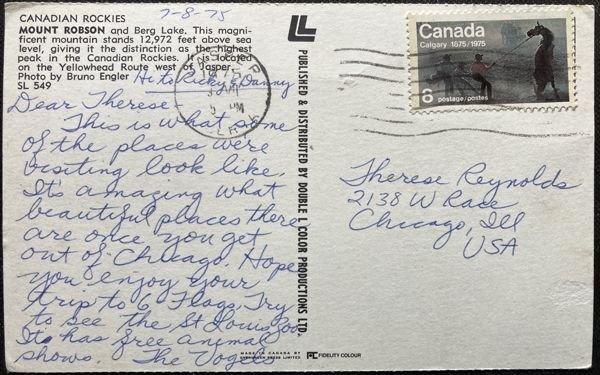 CANADIAN ROCKIES
MOUNT ROBSON and Berg Lake. This magni-
ficent mountain stands 12,972 feet above sea
level, giving it the distinction as the highest
peak in the Canadian Rockies. It is located
on the Yellowhead Route west of Jasper.
Photo by Bruno Engler
SL 549
7-8-75
Hi to Ricky & Danny
Dear Therese,
This is what some
of the places were
visiting look like.
It's amazing what
beautiful places there
are once you get
out of Chicago. Hope
you enjoy your
trip to 6 Flags. Try
to see the St Louis Zoo
Its has free animal
shows. The Vogels
PUBLISHED & DISTRIBUTED BY DOUBLE L COLOR PRODUCTIONS LTD.
MADE IN CANADA BY
EVERGREEN PRESS LIMITED
FIDELITY COLOUR
JASPER
ALTA
PM
Canada
Calgary 1875/1975
8 postage/postes
Therese Reynolds
2138 W Race
Chicago, Ill
USA